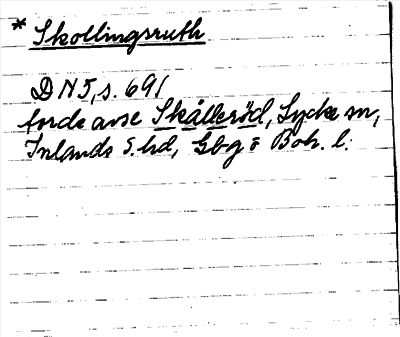 * Skollingsruth
DN 5, s. 691
torde avse Skålleröd, Lycke sn,
Inlands S. hd, Gbg o Boh. l.